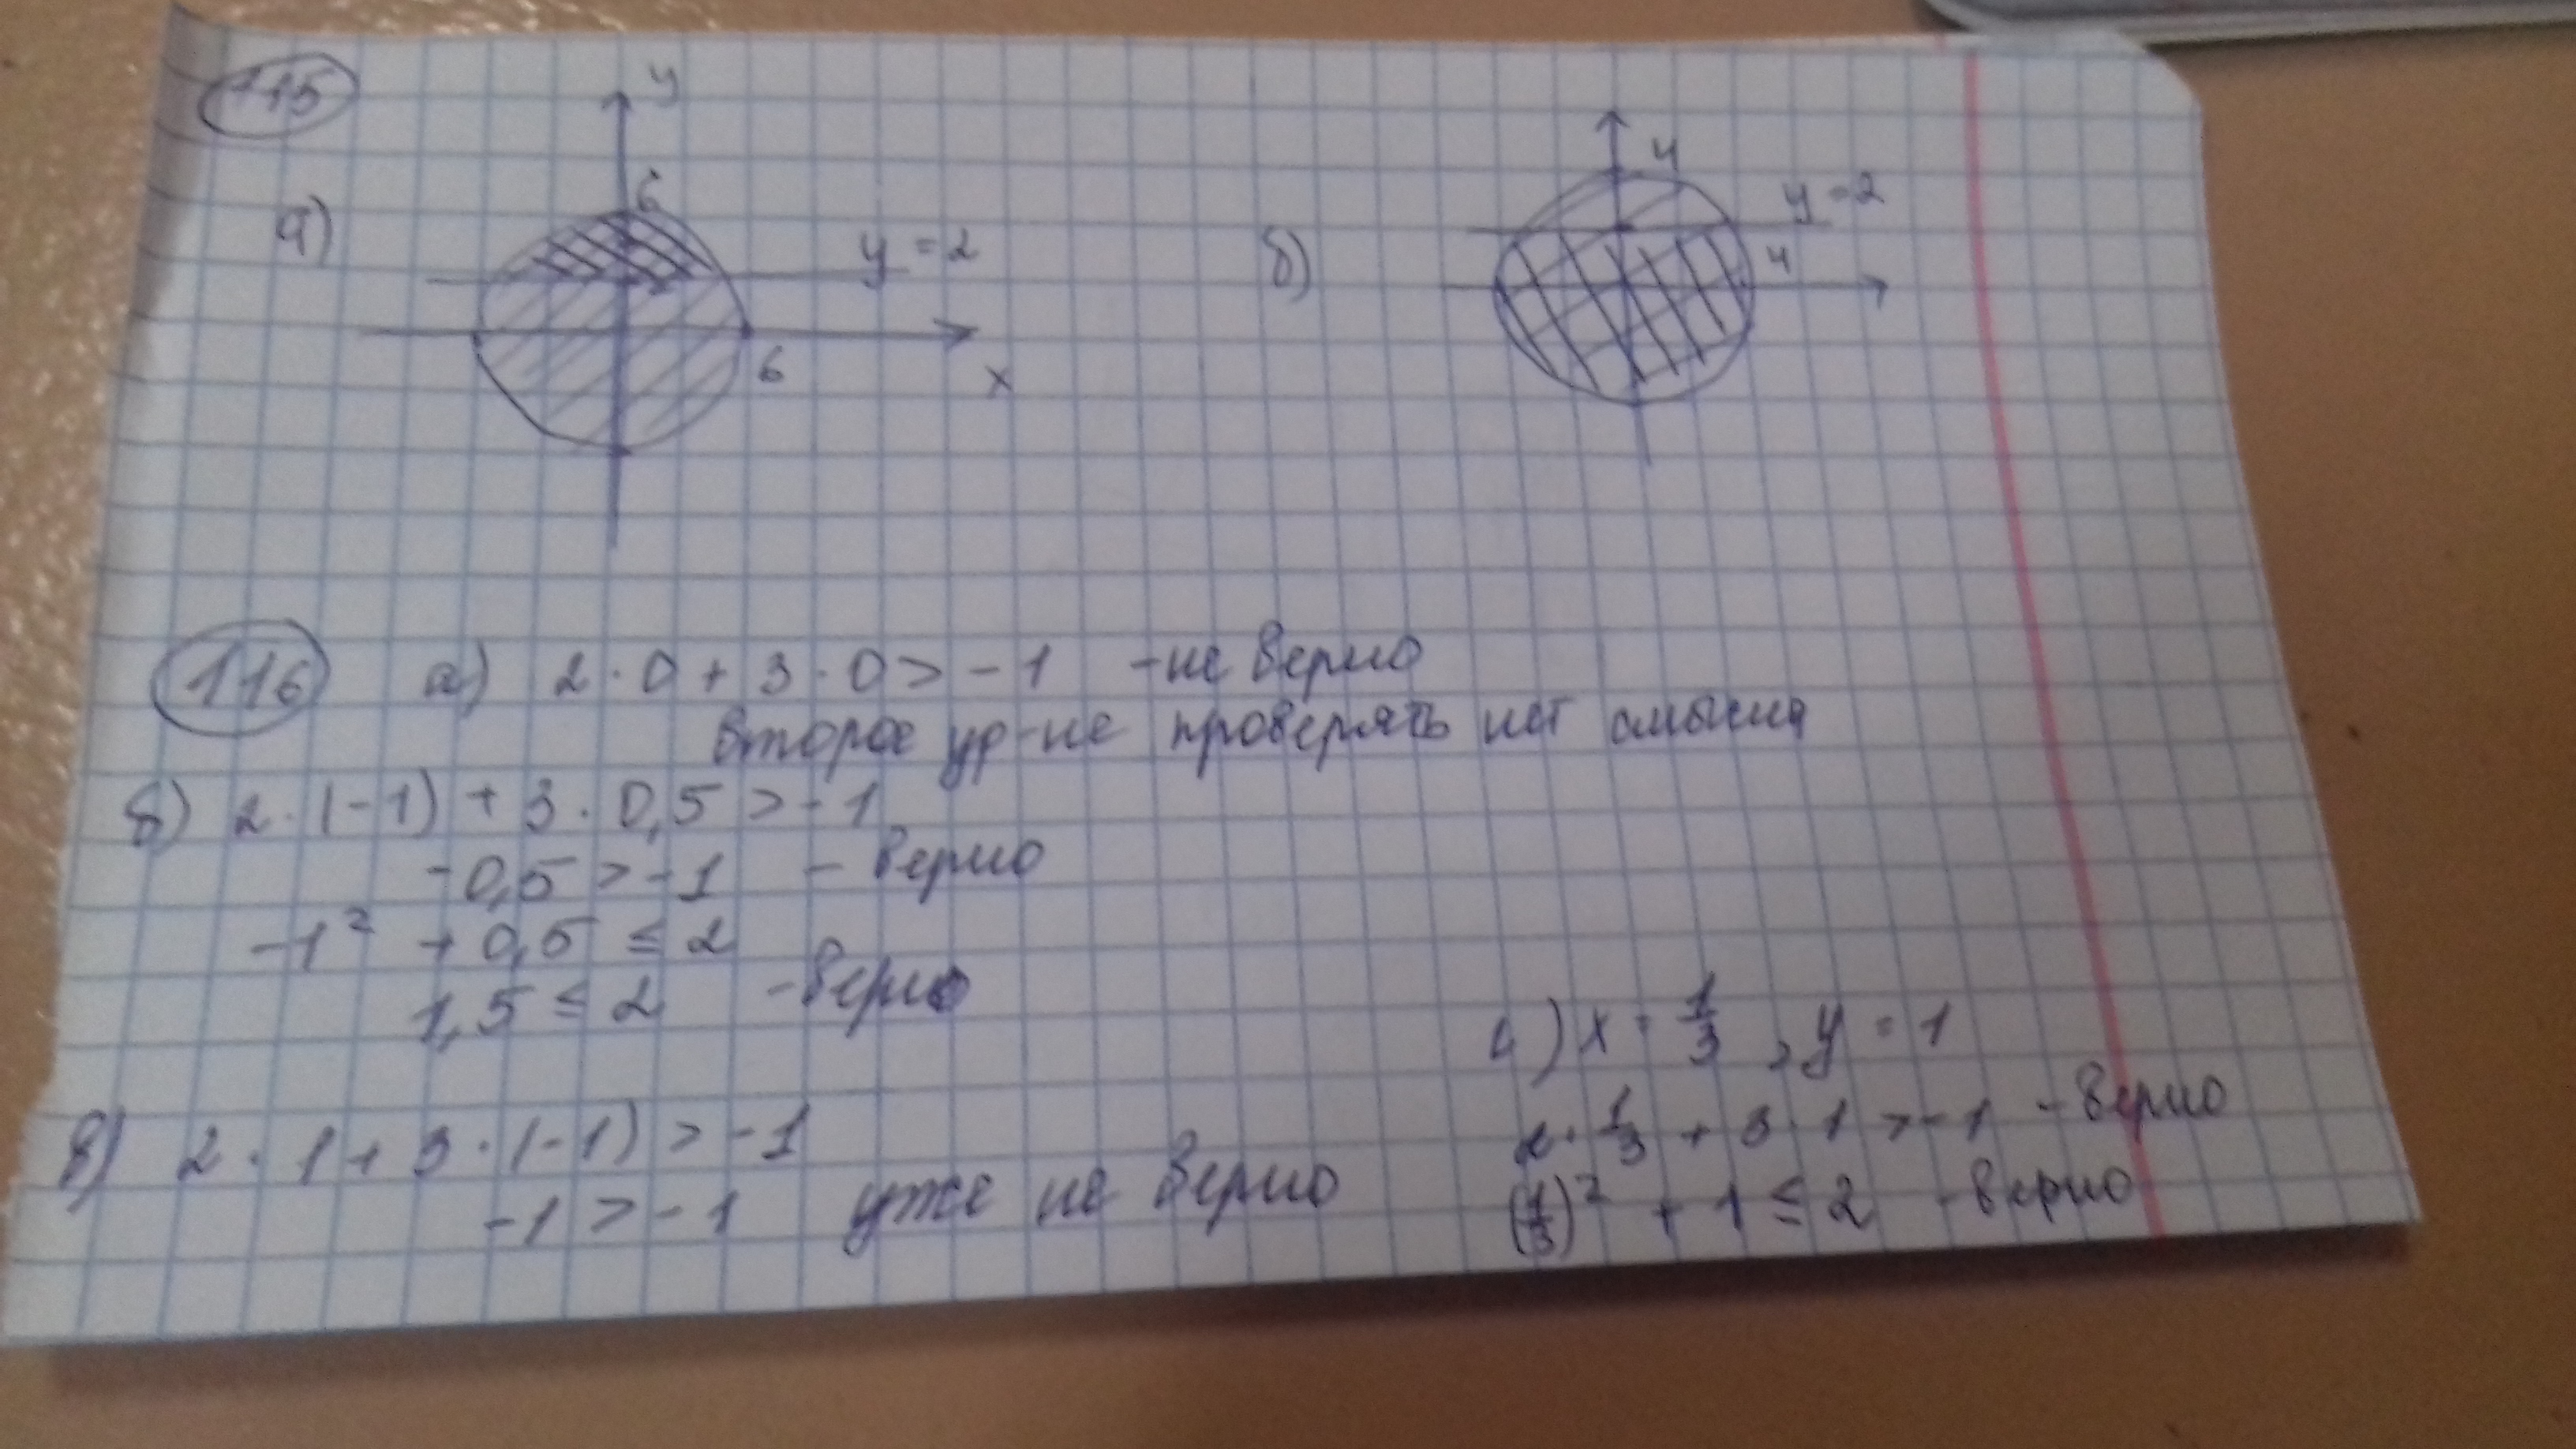 115
а)
y
6
y = 2
6
x
б)
4
y = 2
4
116 а) 2 · 0 + 3 · 0 > - 1 - не верно
второе ур-ие проверять нет смысла
б) 2 · (-1) + 3 · 0,5 > - 1
-0,5 > - 1 - верно
-1² + 0,5 ≤ 2
1,5 ≤ 2 - верно
в) 2 · 1 + 3 · (-1) > - 1
-1 > - 1 уже не верно
x = 1/3 , y = 1
2 · 1/3 + 3 · 1 > - 1 - верно
(1/3)² + 1 ≤ 2 - верно